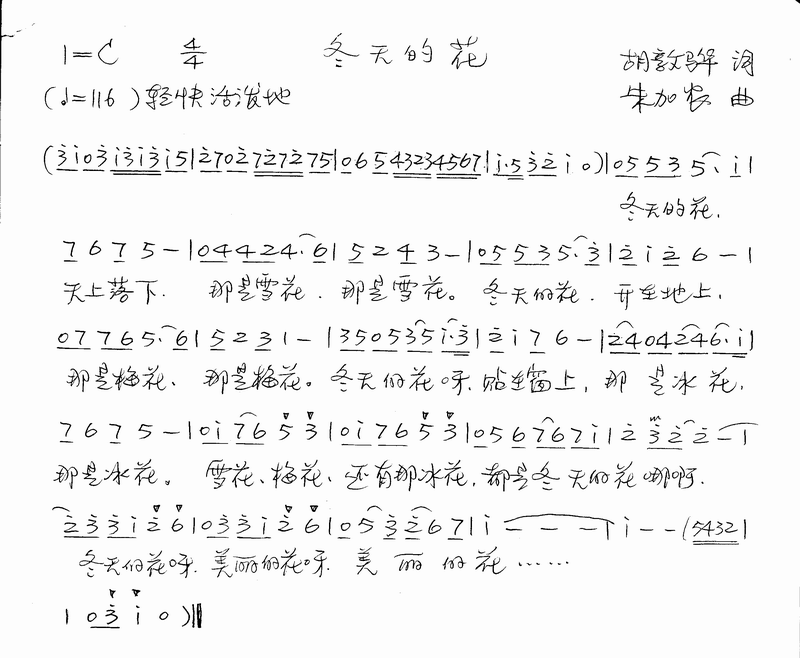 1=C 4/4 冬天的花 胡敦骅 词
(♩=116)轻快活泼地 朱加农 曲
(3̇i03̇i3̇i3̇i5|2̇702̇72̇72̇75|06543234567|i·53̇2̇i0)|05535·i|
冬天的花,
7675-|04424·6|5243-|05535·3̇|2̇i2̇6-|
天上落下. 那是雪花. 那是雪花。 冬天的花. 开在地上,
07765·6|5231-|350535i·3̇|2̇i76-|2404246·i|
那是梅花、 那是梅花。 冬天的花呀.贴在窗上, 那 是冰花,
7675-|0i7653̇|0i7653̇|0567671̇|2̇3̇2̇2̇-|
那是冰花。 雪花、梅花、还有那冰花,都是冬天的花哪啊.
2̇3̇3̇i2̇6|03̇3̇i2̇6|053̇2̇67|i---|i--(5432|
冬天的花呀.美丽的花呀.美 丽 的 花……
103̇i0)‖